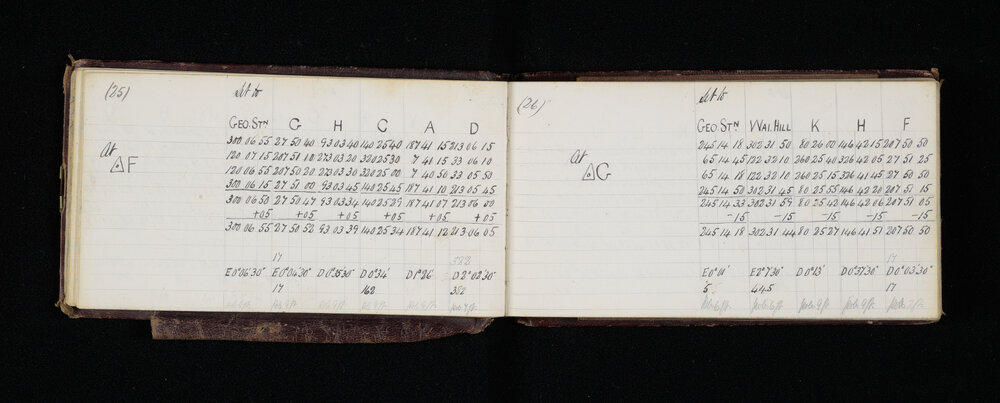 (25)
Set to
GEO. STN G H C A D
At
△F
300 06 55 27 50 40 93 03 40 140 25 40 187 41 15 213 06 15
120 07 15 207 51 10 273 03 20 320 25 30 7 41 15 33 06 10
120 06 55 207 50 20 273 03 30 320 25 00 7 40 50 33 05 50
300 06 15 27 51 00 93 03 45 140 25 45 187 41 10 213 05 45
300 06 50 27 50 47 93 03 34 140 25 29 187 41 07 213 06 00
+05 +05 +05 +05 +05 +05
300 06 55 27 50 52 93 03 39 140 25 34 187 41 12 213 06 05
17 382
E0°06'30" E0°04'30" D0°35'30" D0°34' D1°26' D2°02'30"
17 162 382
(26)
Set to
GEO. STN WAI. HILL K H F
At
△G
245 14 18 302 31 50 80 26 00 146 42 15 207 50 50
65 14 45 122 32 10 260 25 40 326 42 05 27 51 25
65 14 18 122 32 10 260 25 15 326 41 45 27 50 50
245 14 50 302 31 45 80 25 55 146 42 20 207 51 15
245 14 33 302 31 59 80 25 42 146 42 06 207 51 05
-15 -15 -15 -15 -15
245 14 18 302 31 44 80 25 27 146 41 51 207 50 50
17
E0°11' E2°7'30" D0°13' D0°37'30" D0°03'30"
5 445 17